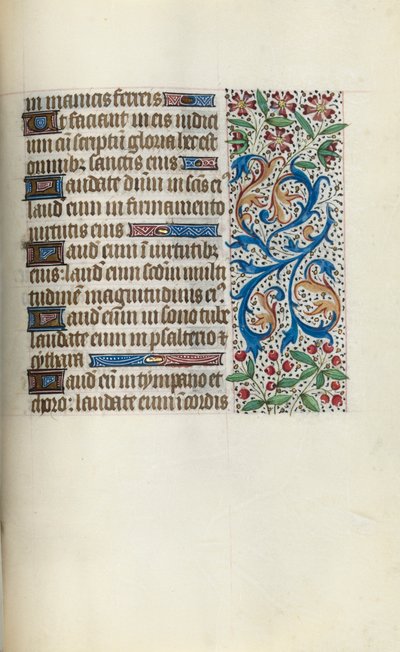 in manicis ferreis
Ut faciant in eis iudici
um cū scriptū gloria hec est
omnibz sanctis eius
Laudate dūm in scīs ei
laud eum in firmamento
uirtutis eius
Laud eum ī uirtutibz
eius: laud eum scdm multi
tudinē magnitudinis ei9
Laud eum in sono tube
laudate eum in psalterio et
cythara
Laud eū in tympano et
choro: laudate eum ī cordis